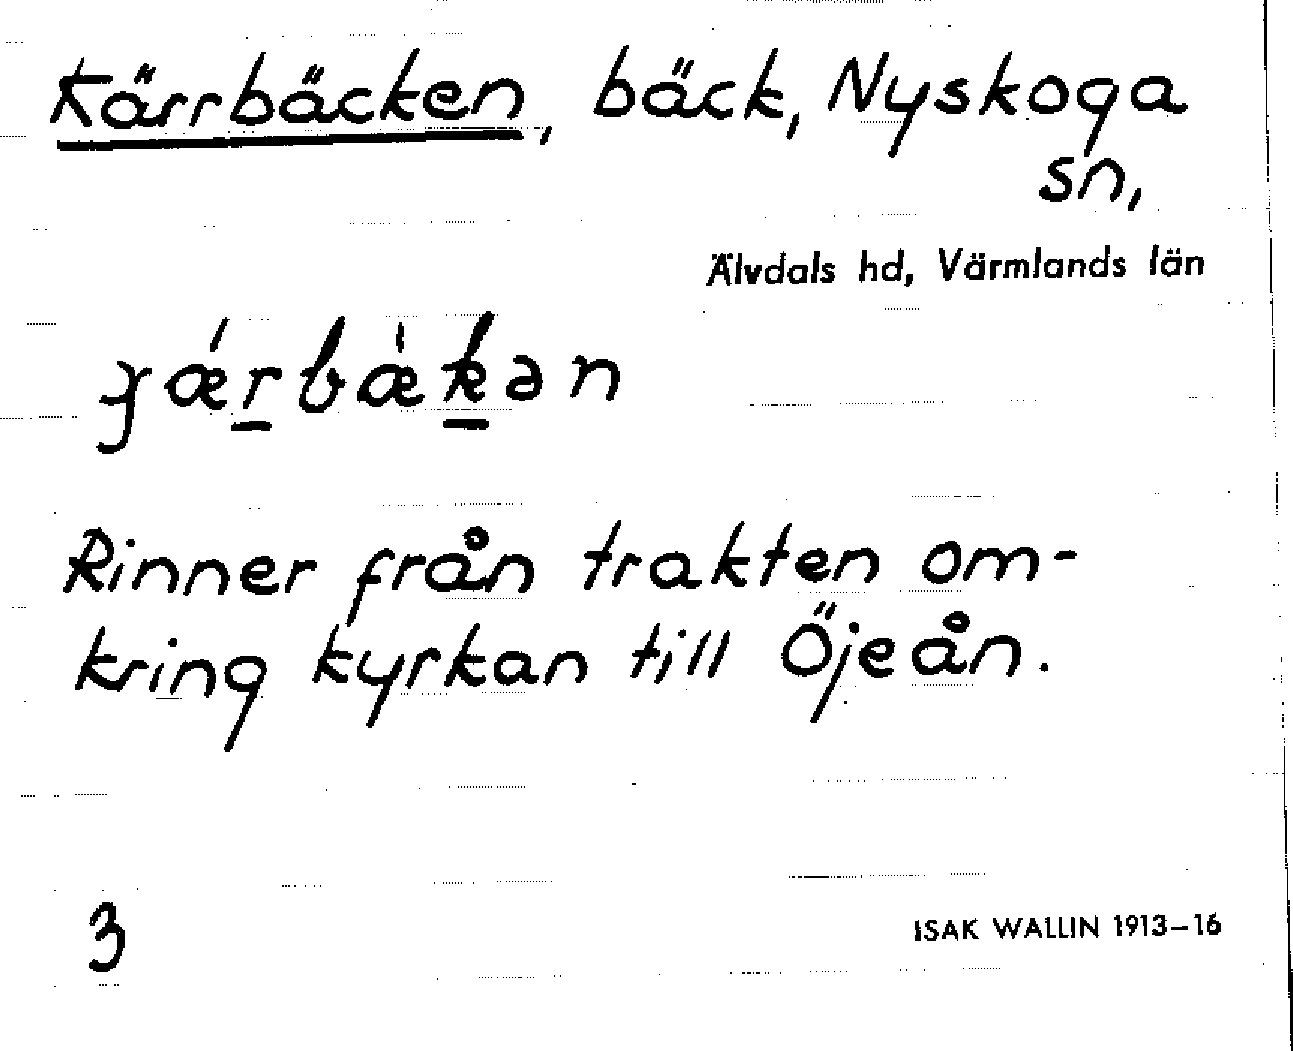 Kärrbäcken, bäck, Nyskoga
sn,
Älvdals hd, Värmlands län
ɟǽr̲bæ̍k̲ən
Rinner från trakten om-
kring kyrkan till Öjeån.
3
ISAK WALLIN 1913–16